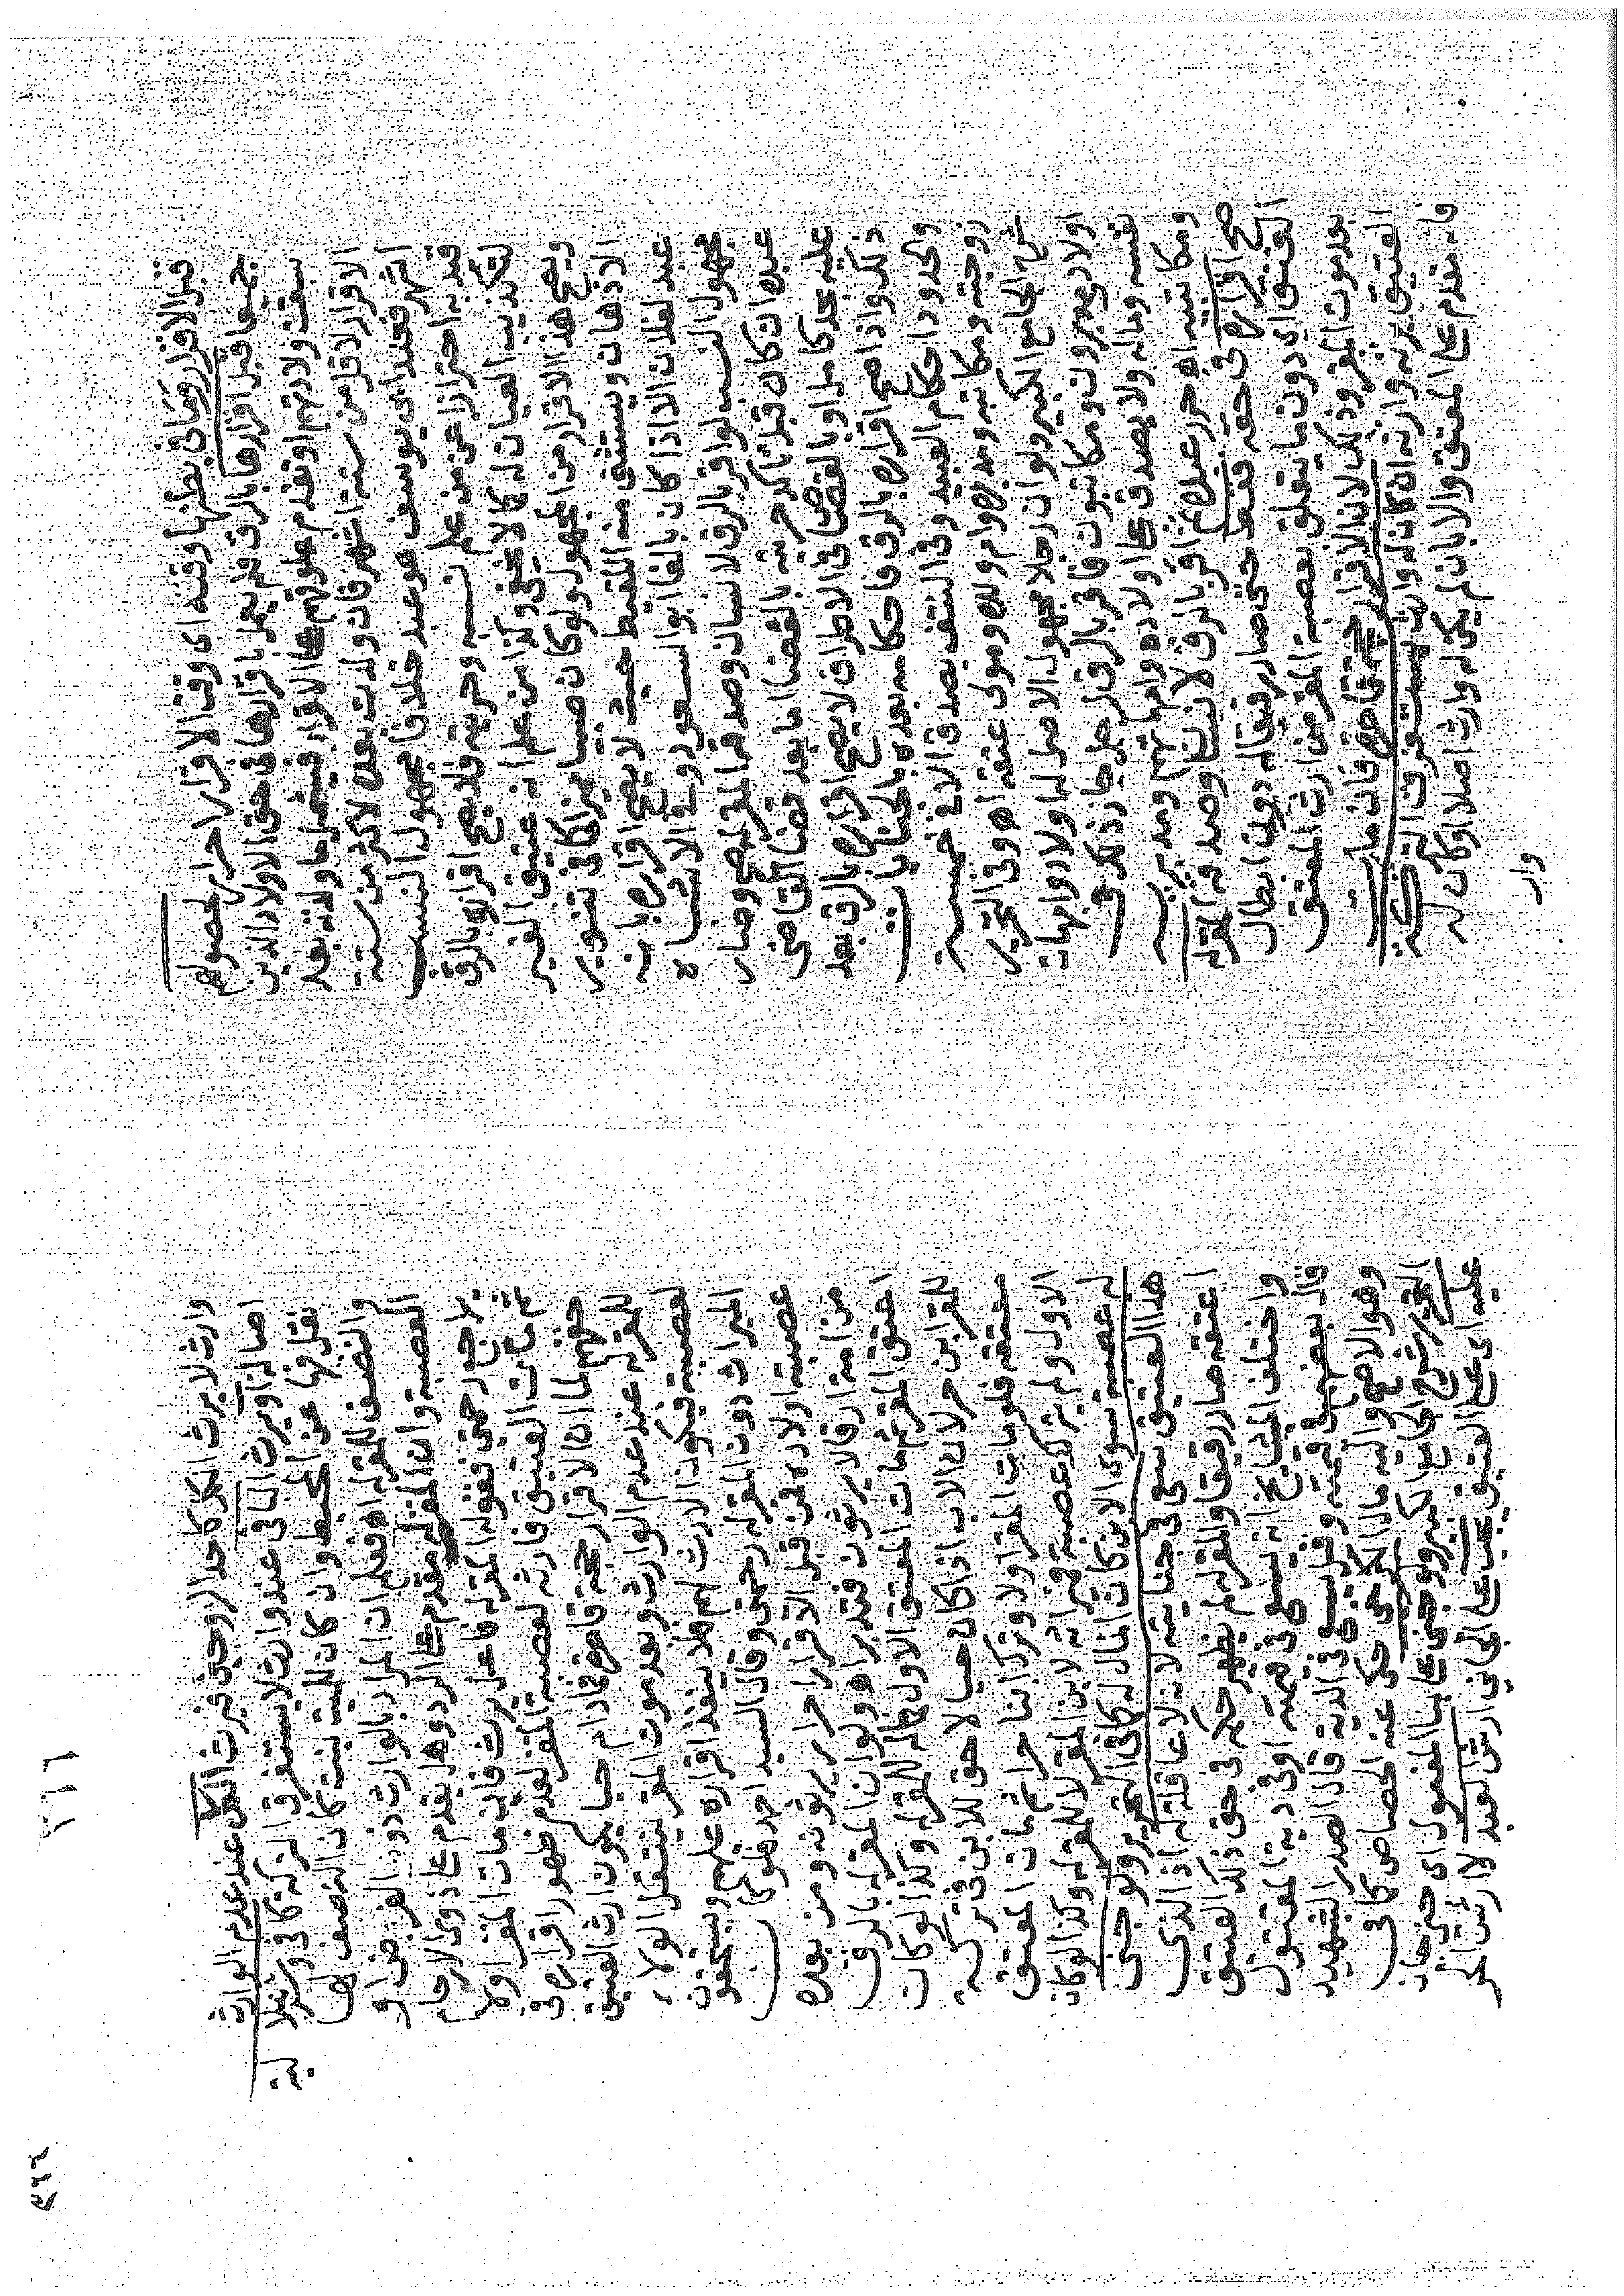 قبل الاقرار وما في بطنها وقته اي وقت الاقرار احرار لحصولهم
جميعا قبل اقرارها بالرق فلم يعمل باقرارها في حق الاولاد الذين
سبقت ولادتهم او تقدم علوقهم على الاقرار فيشمل ما ولدته بعد
الاقرار لاقل من ستة اشهر فان ولدت بعده لاكثر من ستة
اشهر فعند ابي يوسف هو عبد خلافا مجهول النسب
قيد به احترازا عن من علم نسبه وحريته فلا يصح اقراره بالرق
لتكذيب العيان له كما لا يخفى وكذا من علم انه عتيق الغير
ويصح هذا الاقرار من المجهول ولو كان صبيا مميزا كما في تنوير
الاذهان ويستثنى منه اللقيط حيث لا يصح اقراره بانه
عبد لفلان الا اذا كان بالغا ابو السعود وفي الاشباه
مجهول النسب لو اقر بالرق لانسان وصدقه المقر له صح وصار
عبده ان كان قبل تاكد حريته بالقضا اما بعد قضا القاضي
عليه بحد كامل او بالقصاص في الاطراف لا يصح اقراره بالرق بعد
ذلك واذا صح اقراره بالرق فاحكامه بعده بالجنايات
والحدود احكام العبيد وفي النتف يصدق الا في خمسة
زوجته ومكاتبه ومدبره وام ولده ومولى عتقه اه وفي التحرير
شرح الجامع الكبير ولو ان رجلا مجهول الاصل له اولاد وامهات
اولاد ومدبرون ومكاتبون فاقر بالرق لرجل جاز ذلك في
نفسه وماله ولا يصدق على اولاده وامهاتهم ومدبريه
ومكاتبيه اه حرر عبده ثم اقر بالرق لانسان وصدقه المقر له
صح اقراره في حقه فقط حتى صار رقيقا له دون ابطال
العتق اي دون ما يتعلق بعصبة المقر من ارث المعتق
بعد موت المقر وذلك لان الاقرار حجة قاصرة فان مات
العتيق يرثه وارثه ان كان له وارث يستغرق التركة
فانه مقدم على المعتق والا بان لم يكن له وارث اصلا او كان له
وار
٢١١
وارث لا يرث الكل كاحد الزوجين فيرث الكل عند عدم الوارث
اصالة او يرث الباقي عند وارث لا يستغرق التركة كما في شرنبلالية
نقل فيها عن المحيط وان كان للميت بنت كان النصف لها
والنصف للمقر له اه فعلم ان المراد بالوارث ذو الفرض او
العصبة وان المقر له مقدم على الرد وهل يقدم على ذوي الارحام
يراجع رحمتي فقوله المقر له فاعل يرث فان مات المقر اولا
ثم مات العتيق فارثه لعصبة المقر لعدم ظهور اقراره في
حقهم لما ان الاقرار حجة قاصرة فمادام حيا يكون ارث العتيق
للمقر له عند عدم الوارث وبعد موت المقر ينتقل الولاء
لعصبته فيكون الارث لهم فلا ينفذ اقراره عليهم ويستحقون
الميراث دون المقر له رحمتي وقال السيد احمد فلو كان
عصبته اولاده فمن قبل الاقرار احرار يرثونه ومن بعده
من امة ارقا لا يرثون فتدبر اه ولو ان المقر له بالرق
اعتق المقر ثم مات المعتق الاول فماله للمقر له وكذا لو كان
للمقر ابن حر لان الاب اذا كان حيا لا حق للابن في تركة
معتقه فلو مات المقر اولا وترك ابنا حرا ثم مات المعتق
الاول ولم يترك عصبة فميراثه لابن المقر لا للمقر له وكذا لو كان
له عصبة سوى الابن كان المال له كما في التحرير ولو جنى
هذا العتيق سعى في جنايته لانه لا عاقلة له اذ الذي
اعتقه صار رقيقا والمقر له لم يظهر حكمه في حق ذلك العتيق
واختلف المشايخ انه تسعى في قيمته او في دية المقتول
قال بعضهم في قيمته وقيل يسعى في الدية قال الصدر الشهيد
وهو الاصح واليه مال الكرخي حكى عنه الجصاص كما في
التحرير شرح الجامع الكبير ولو جني على بنا المفعول اي جنى جان
عليه اي على العتيق يجب على الجاني ارش العبد لا ارش الحر
لينا
٤٢٢